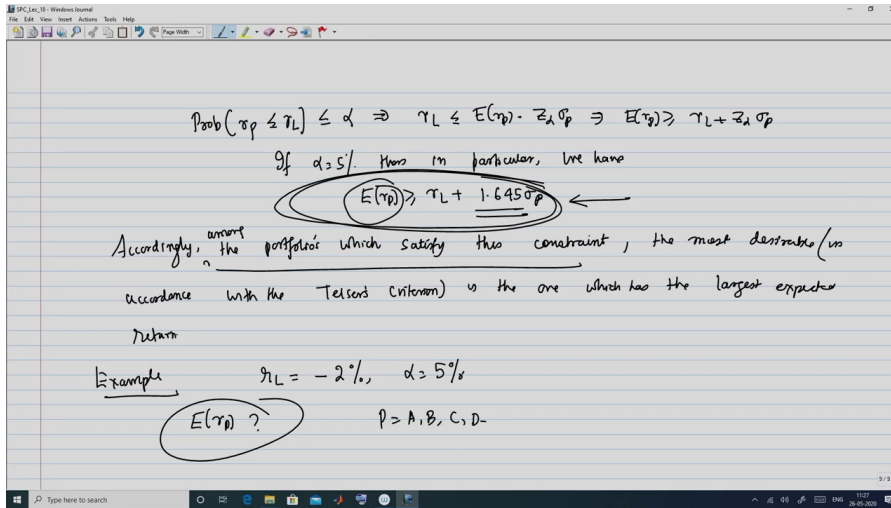 SPC_Lec_18 - Windows Journal
File Edit View Insert Actions Tools Help
Page Width
Prob(r_P ≤ r_L) ≤ α ⇒ r_L ≤ E(r_P) - Z_α σ_P ⇒ E(r_P) ≥ r_L + Z_α σ_P
If α = 5% then in particular, we have
E(r_P) ≥ r_L + 1.645 σ_P
Accordingly, among the portfolios which satisfy this constraint, the most desirable (in
accordance with the Telser's Criterion) is the one which has the largest expected
return
Example r_L = -2%, α = 5%
E(r_P) ? P = A, B, C, D-
9/9
Type here to search
ENG
11:27
26-05-2020